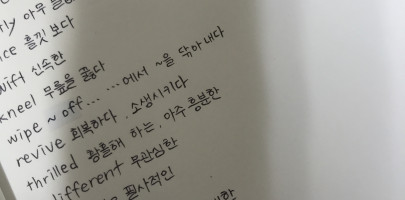 ly 아무
흘낏 보다
ift 신속한
kneel 무릎을 꿇다
wipe ~ off… …에서 ~을 닦아내다
revive 회복하다, 소생시키다
thrilled 황홀해 하는, 아주 흥분한
ifferent 무관심한
필사적인